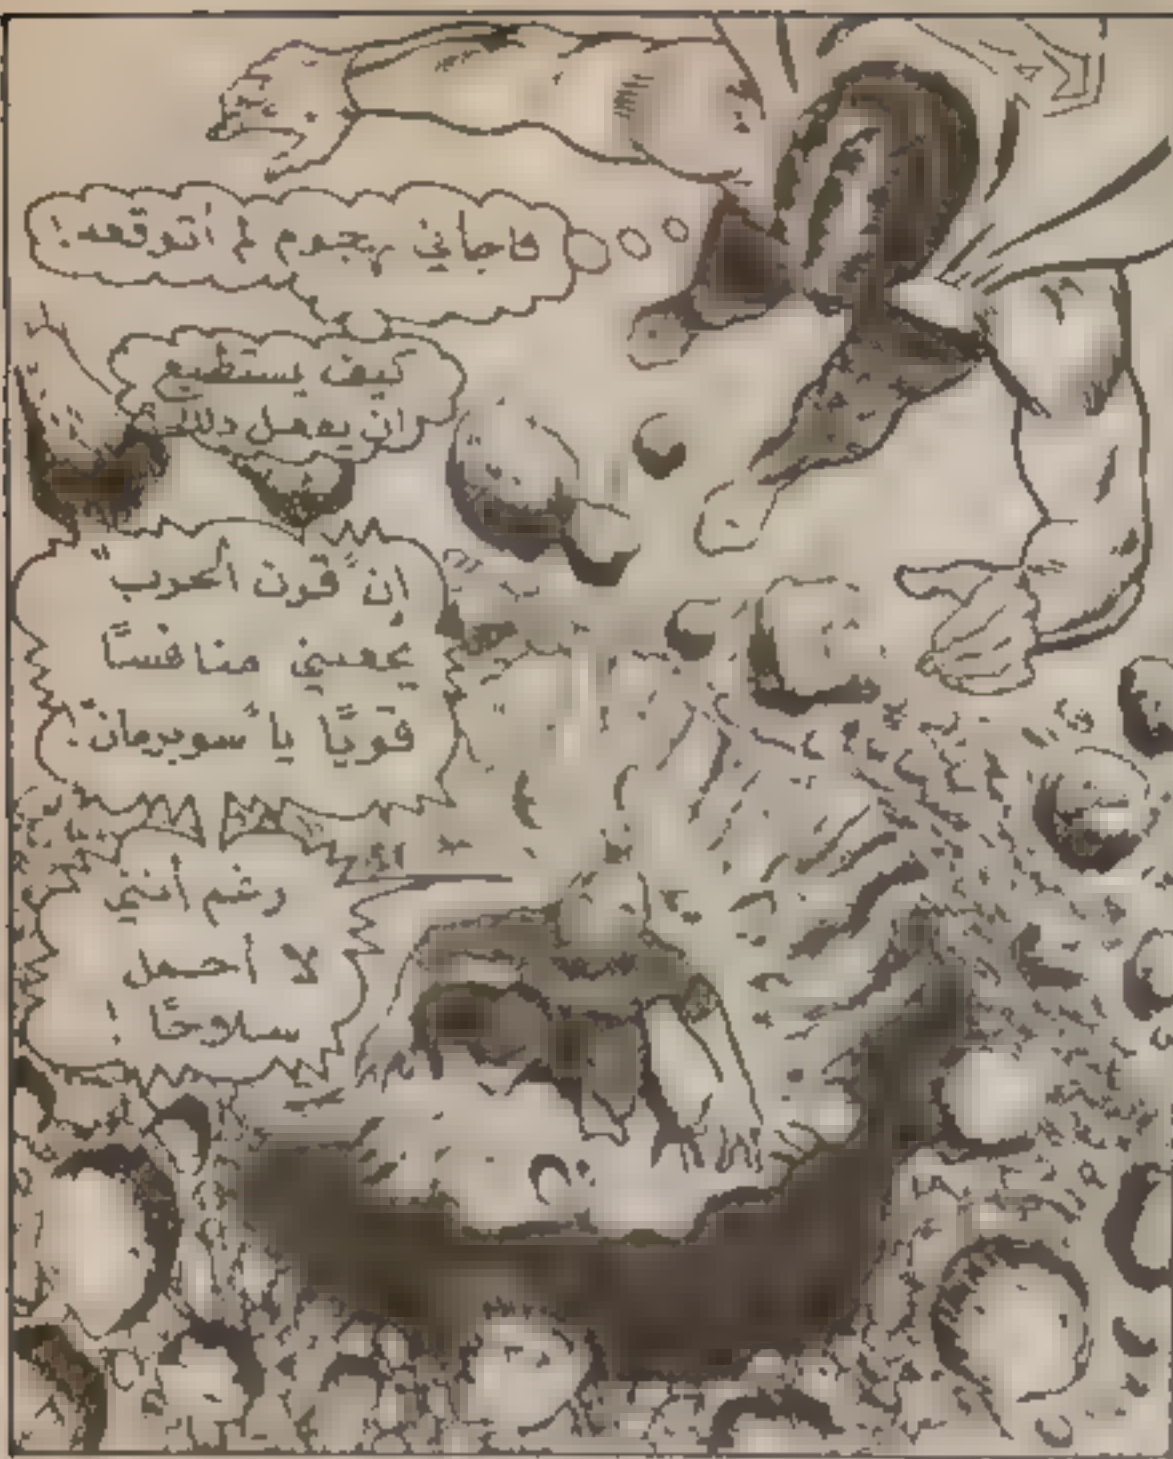 فاجأني بهجوم لم أتوقعه!
كيف يستطيع
ان يفعل ذلك؟
إن "قرن الحرب"
يجعلني منافسًا
قويًا يا "سوبرمان"!
رغم أنني
لا أحمل
سلاحًا!